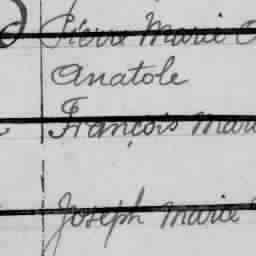 Pierre Marie
Anatole
François Marie
Joseph Marie